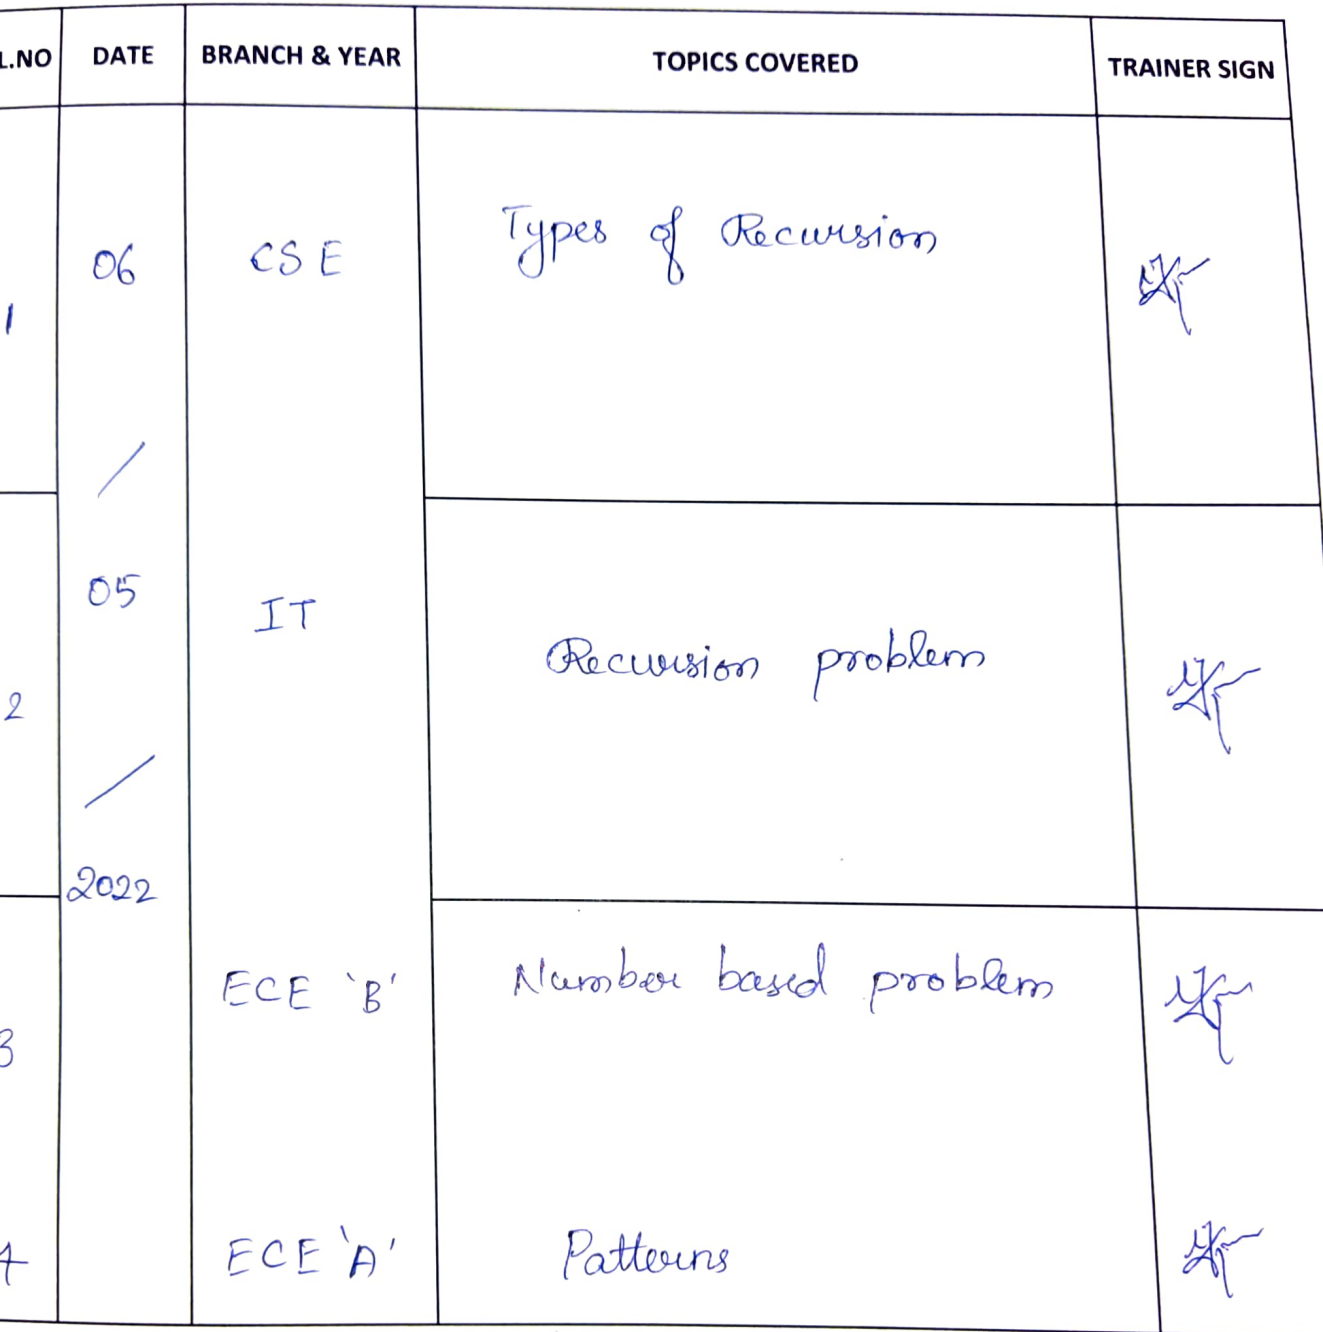 L.NO DATE BRANCH & YEAR TOPICS COVERED TRAINER SIGN
1 06 CSE Types of Recursion
/
05 IT
2 Recursion problem
/
2022
3 ECE 'B' Number based problem
4 ECE 'A' Patterns